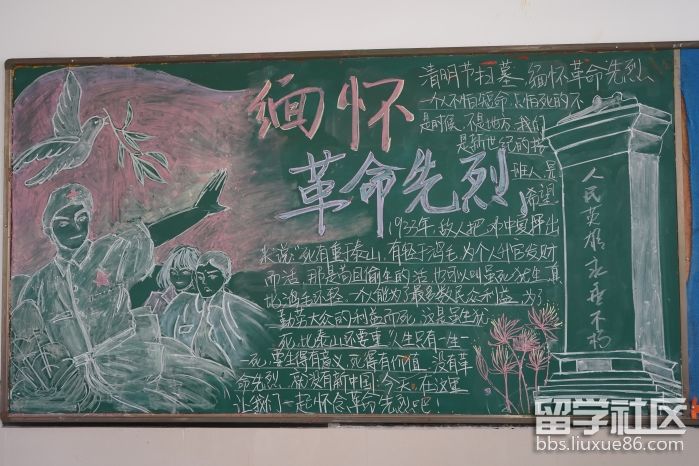 缅怀
革命先烈
清明节扫墓,缅怀革命先烈、
一个人不怕短命,只怕死的不
是时候,不是地方,我们
是新世纪的接
班人,是
希望
1935年,敌人把邓中夏押出
来说:"死有重于泰山,有轻于鸿毛,为个人升官发财
而活,那是苟且偷生的活,也可以叫虽死犹生,真
比鸿毛还轻,一个人能为了最多数民众利益,为了
勤劳大众的利益而死,这是虽生犹
死,比泰山还要重,人生只有一生一
死,要生得有意义,死得有价值。没有革
命先烈,就没有新中国,今天,在这里
让我们一起怀念革命先烈吧!
人民英雄永垂不朽
留学社区
bbs.liuxue86.com